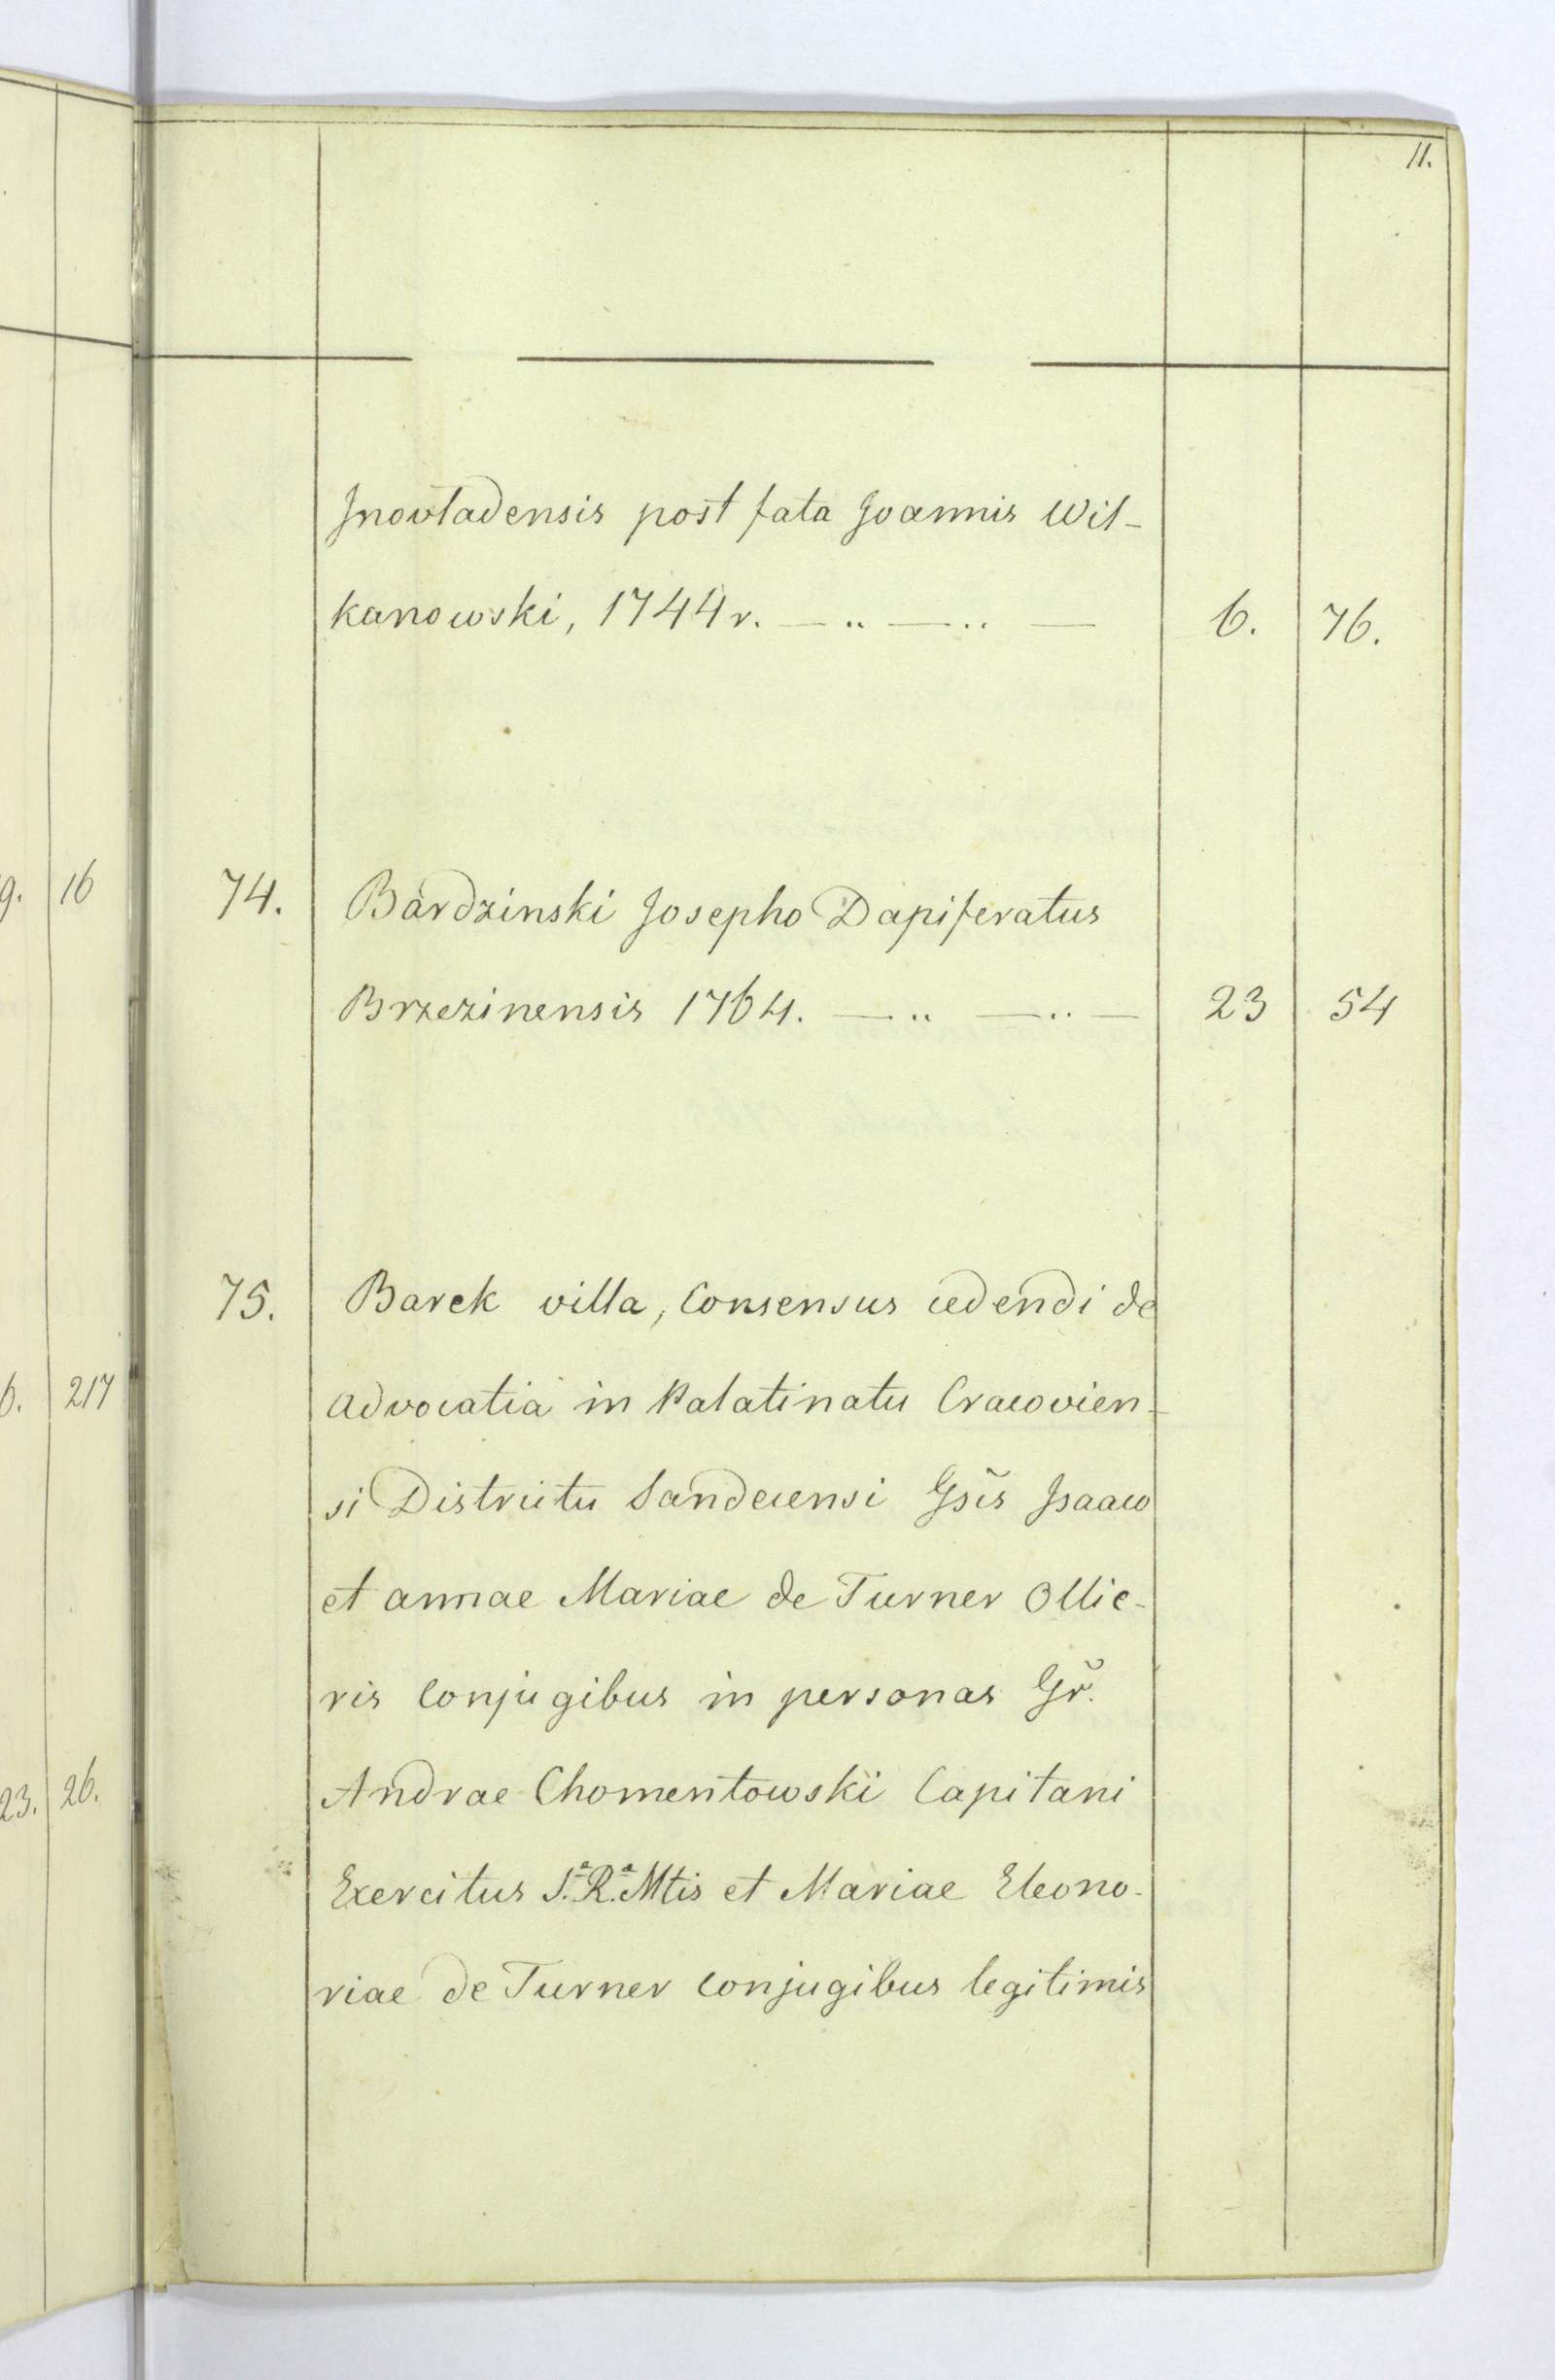 11.
Inovladensis post fata Joannis Wil-
kanowski, 1744r. — .. — .. — 6. 76.
9. 16
74. Bardzinski Josepho Dapiferatus
Brzezinensis 1764. — .. — .. — 23 54
75. Barek villa, Consensus cedendi de
6. 217
advocatia in Palatinatu Cracovien-
si Districtu Sandecensi Gsis Isaaco
et annae Mariae de Turner Ollie-
ris conjugibus in personas Gr.
23. 26.
Andrae Chomentowski Capitani
Exercitus S.ª R.ª Mtis et Mariae Eleono-
riae de Turner conjugibus legitimis